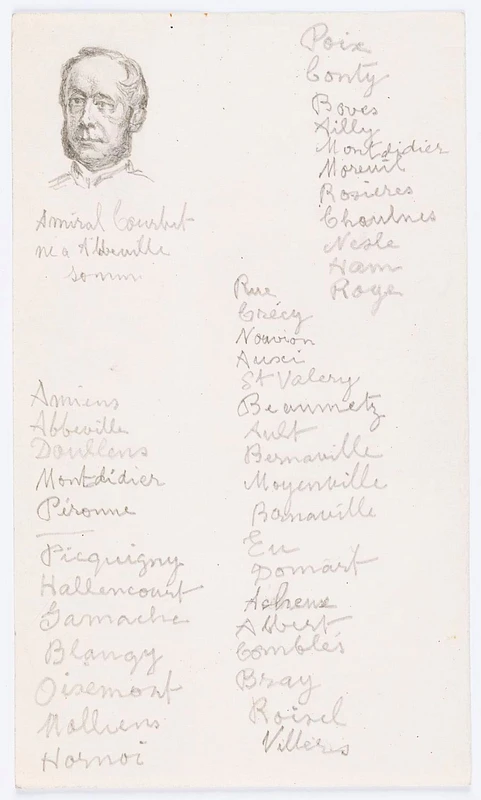 Amiral Courbet
né a Abbeville
somm
Amiens
Abbeville
Doullens
Montdidier
Péronne
Picquigny
Hallencourt
Gamache
Blangy
Oisemont
Molliens
Hornoi
Poix
Conty
Boves
Ailly
Montdidier
Moreuil
Rosieres
Chaulnes
Nesle
Ham
Roye
Rue
Crécy
Nouvion
Auxi
St Valery
Beaumetz
Ault
Bernaville
Moyenville
Barnaville
Eu
Domart
Acheux
Albert
Combles
Bray
Roisel
Villers